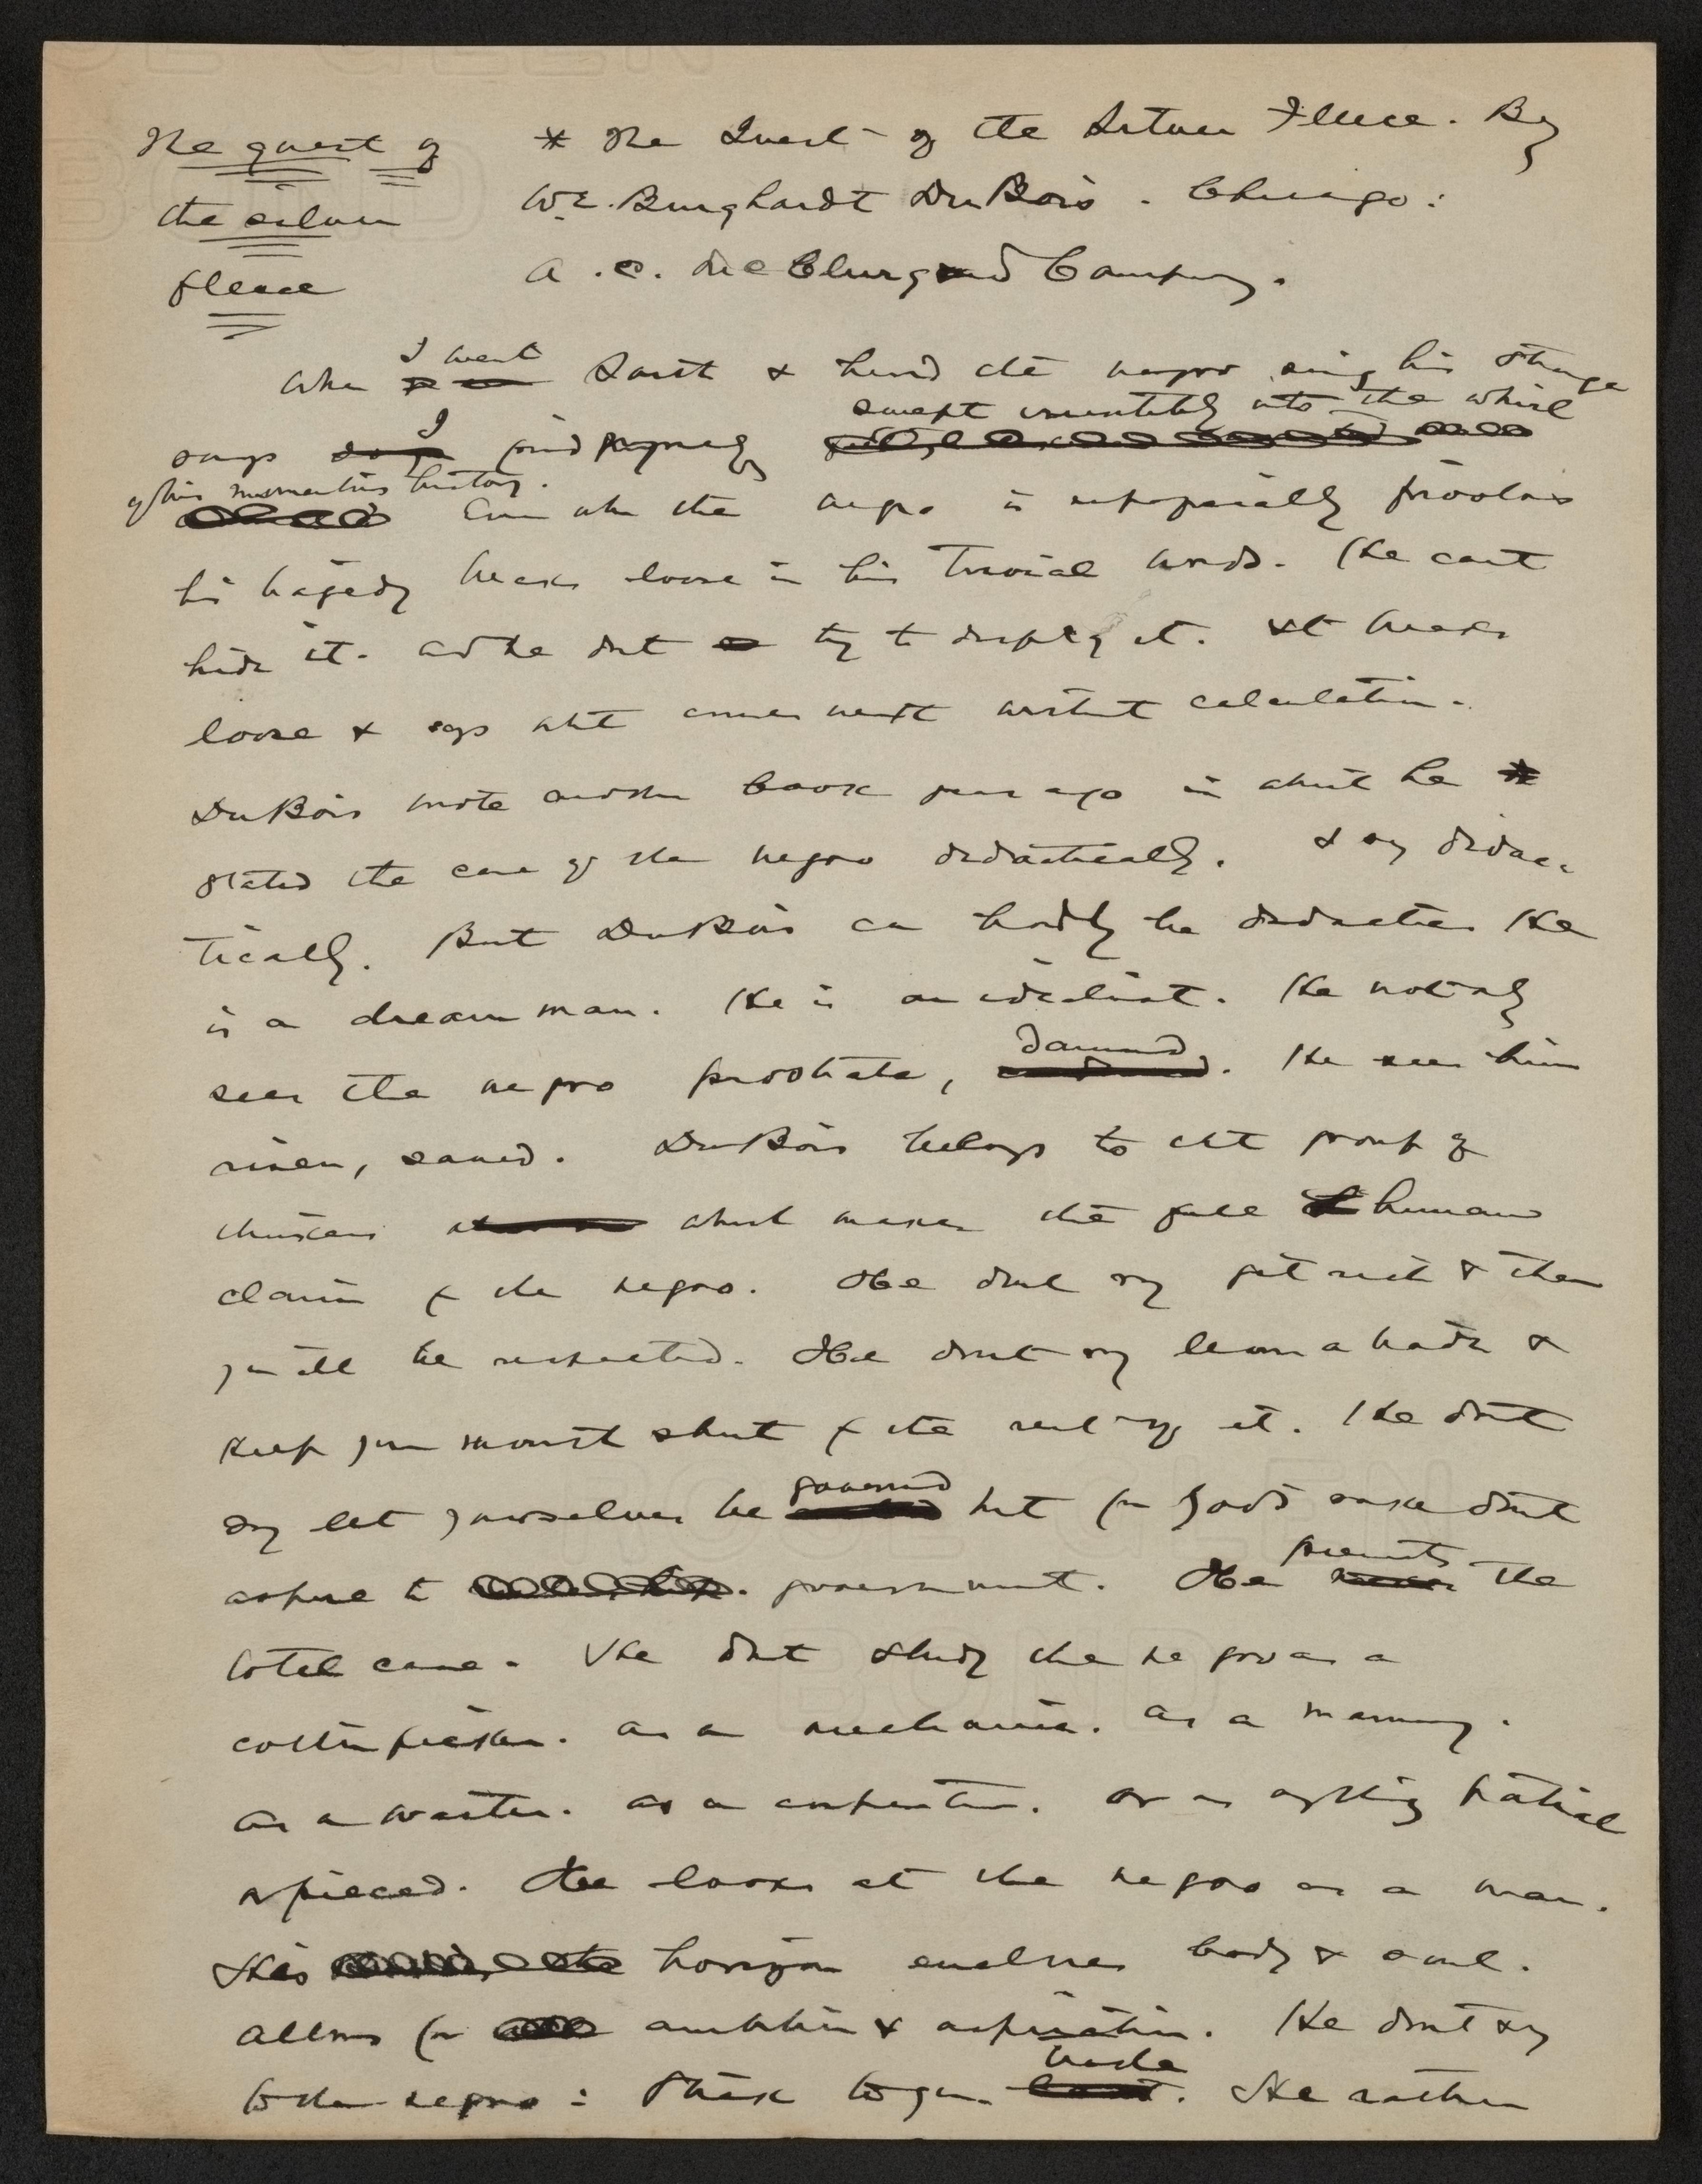 The quest of
the silver
fleece
* The Quest of the Silver Fleece. By
W. E. Burghardt DuBois. Chicago:
A. C. McClurg and Company.
When I went South & heard the negro sing his strange
songs I find myself swept into the whirl
of his history. Even when the negro is superficially frivolous
his tragedy breaks loose in his trivial words. He cant
hide it. And he dont try to display it. It breaks
loose & says what comes next without calculation.
DuBois wrote another book years ago in which he
stated the case of the negro didactically. I say didac-
tically. But DuBois can hardly be didactic. He
is a dream man. He is an idealist. He not only
sees the negro prostrate, damned. He sees him
risen, saved. DuBois belongs to that group of
thinkers which makes the full human
claim for the negro. He dont say get rich & then
you'll be respected. He dont say learn a trade &
keep your mouth shut for the rest of it. He dont
say let yourselves be governed but for God's sake dont
aspire to government. He presents the
total case. He dont study the negro as a
cotton picker. As a mechanic. As a mammy.
As a waiter. As a carpenter. Or as anything partial
or pieced. He looks at the negro as a man.
His horizon encloses body & soul.
Allows for ambition & aspiration. He dont say
to the negro: Stick to your trade. He rather